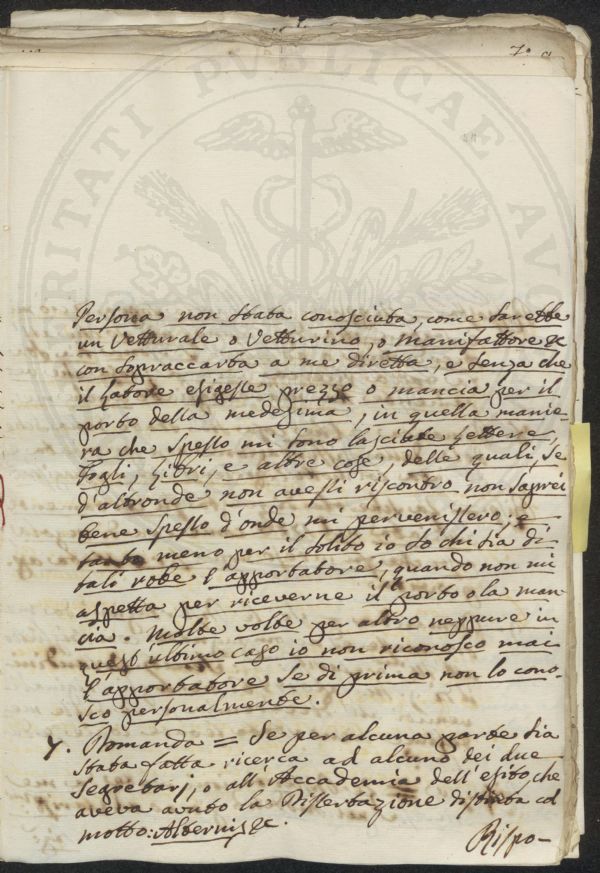 7. a
VERITATI PVBLICAE
Persona non stata conosciuta, come sarebbe
un Vetturale o Vetturino, o Manifattore &c
con sopraccarta a me diretta, e senza che
il Latore esigesse prezzo o mancia per il
porto della medesima, in quella manie-
ra che spesso mi sono lasciate Lettere,
Fogli, Libri, e altre cose, delle quali, se
d'altronde non avessi riscontro non saprei
bene spesso d'onde mi pervenissero; e
tanto meno per il solito io so chi sia di
tali robe l'apportatore, quando non mi
aspetta per riceverne il porto o la man-
cia. Molte volte per altro neppure in
quest'ultimo caso io non riconosco mai
l'apportatore se di prima non lo cono-
sco personalmente.
7. Domanda = Se per alcuna parte sia
stata fatta ricerca ad alcuno dei due
Segretarj, o all'Accademia dell'esito, che
aveva avuto la Dissertazione distinta col
motto: Alternis &c.
Rispo-